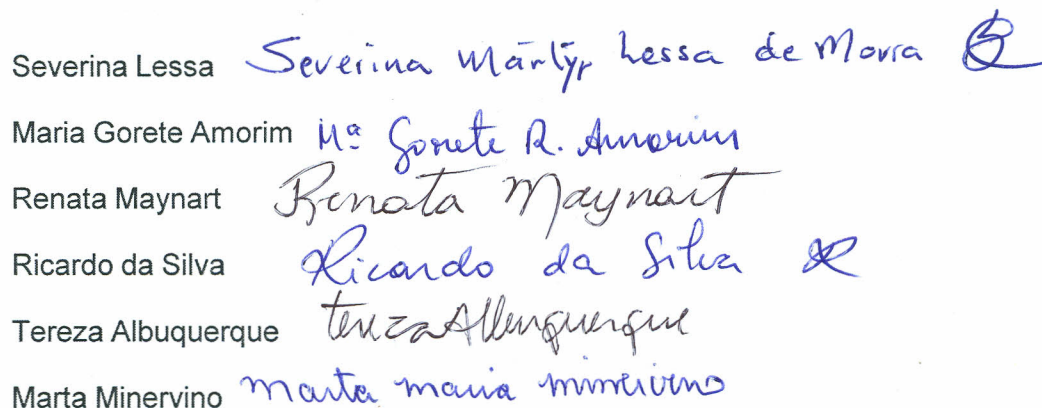 Severina Lessa Severina Mártyr Lessa de Moura
Maria Gorete Amorim Mª Gorete R. Amorim
Renata Maynart Renata Maynart
Ricardo da Silva Ricardo da Silva
Tereza Albuquerque Tereza Albuquerque
Marta Minervino Marta Maria Minervino